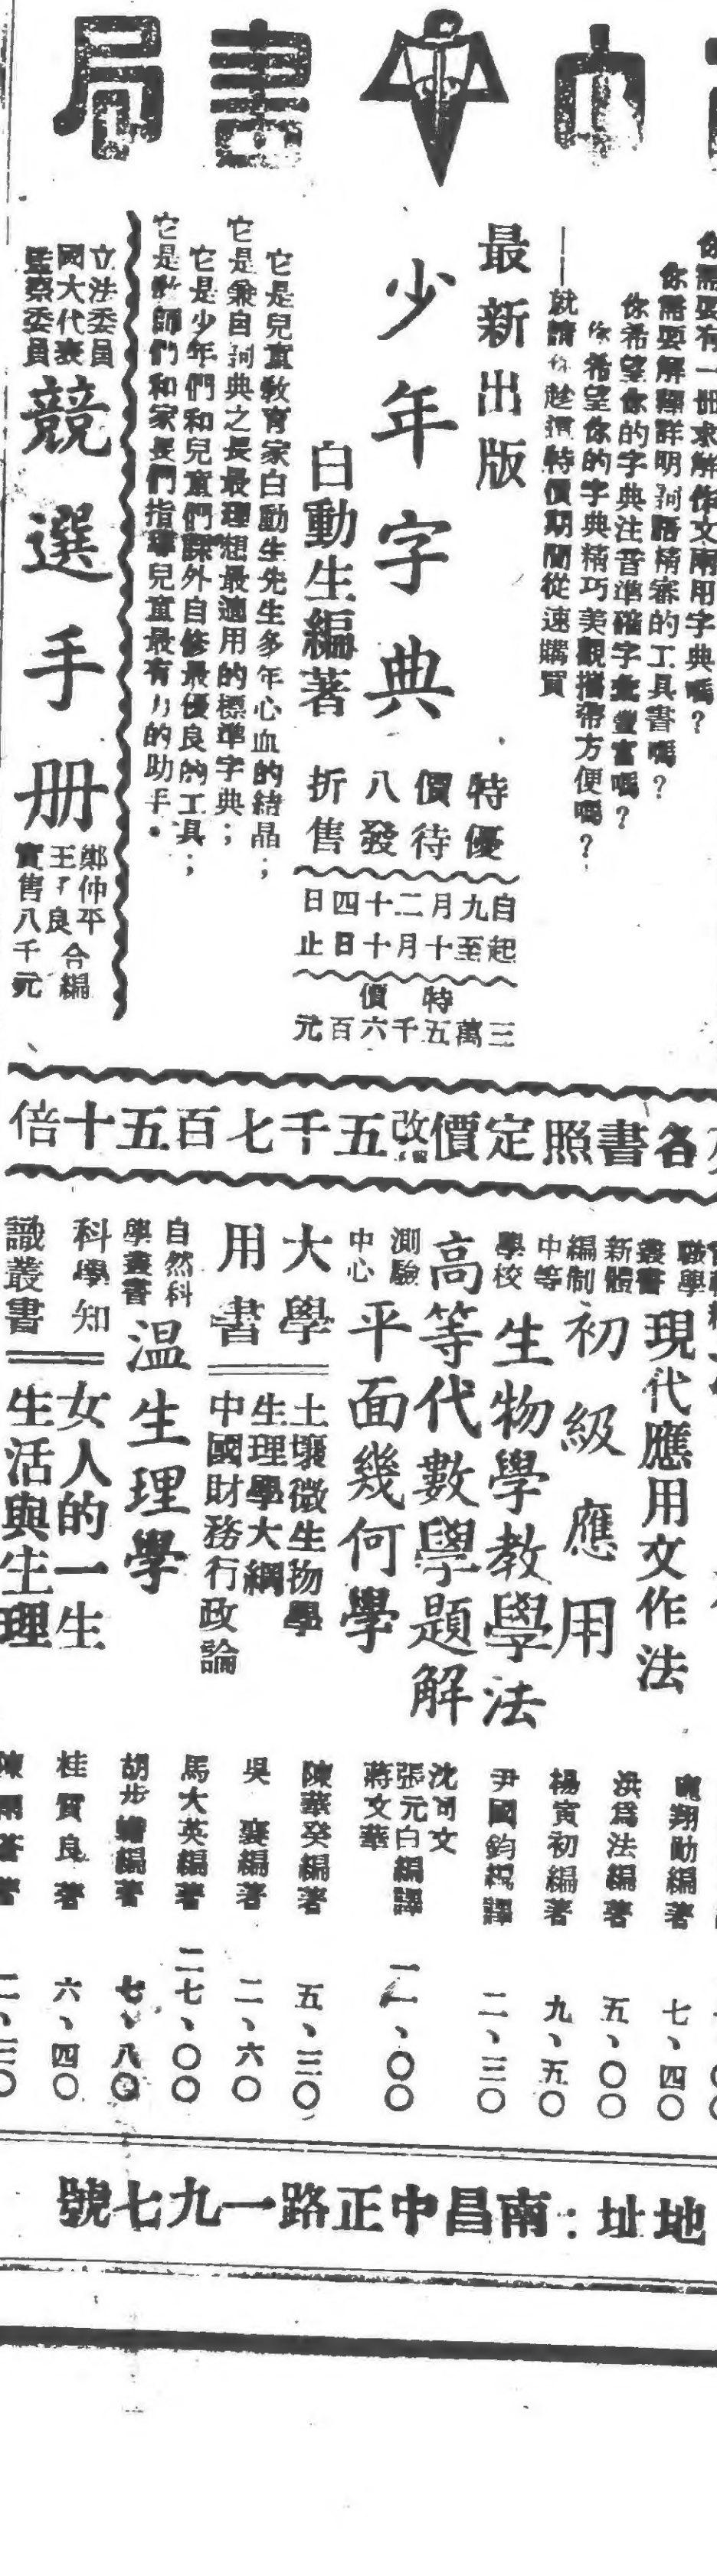 中華書局
你需要有一冊求解作文兩用字典嗎？
你需要解釋詳明詞語精審的工具書嗎？
你希望你的字典注音準確字彙豐富嗎？
你希望你的字典精巧美觀攜帶方便嗎？
——就請你趁這特價期間從速購買
最新出版
少年字典
白動生編著
特價八折
優待發售
自九月二十四日
起至十月十日止
特價
三萬五千六百元
它是兒童教育家白動生先生多年心血的結晶；
它是兼自詞典之長最理想最適用的標準字典；
它是少年們和兒童們課外自修最優良的工具；
它是教師們和家長們指導兒童最有力的助手。
立法委員
國大代表
監察委員
競選手冊
鄭仲平
王了良
合編
實售八千元
各書照定價改五千七百五十倍
職學
叢書
現代應用文作法
翔勛編著
七、四〇
新體
編制
初級應用
洪爲法編著
五、〇〇
中等
學校
生物學教學法
楊寅初編著
九、五〇
高等代數學題解
尹國鈞編譯
二、三〇
測驗
中心
平面幾何學
沈可文
張元白編譯
蔣文華
一一、〇〇
大學
用書
土壤微生物學
陳華癸編著
五、三〇
生理學大綱
吳襄編著
二、六〇
中國財務行政論
馬大英編著
二七、〇〇
自然科
學叢書
温生理學
胡步蟾編著
七、八〇
科學知
識叢書
女人的一生
桂質良著
六、四〇
生活與生理
陳雨蒼著
二、三〇
地址：南昌中正路一九七號